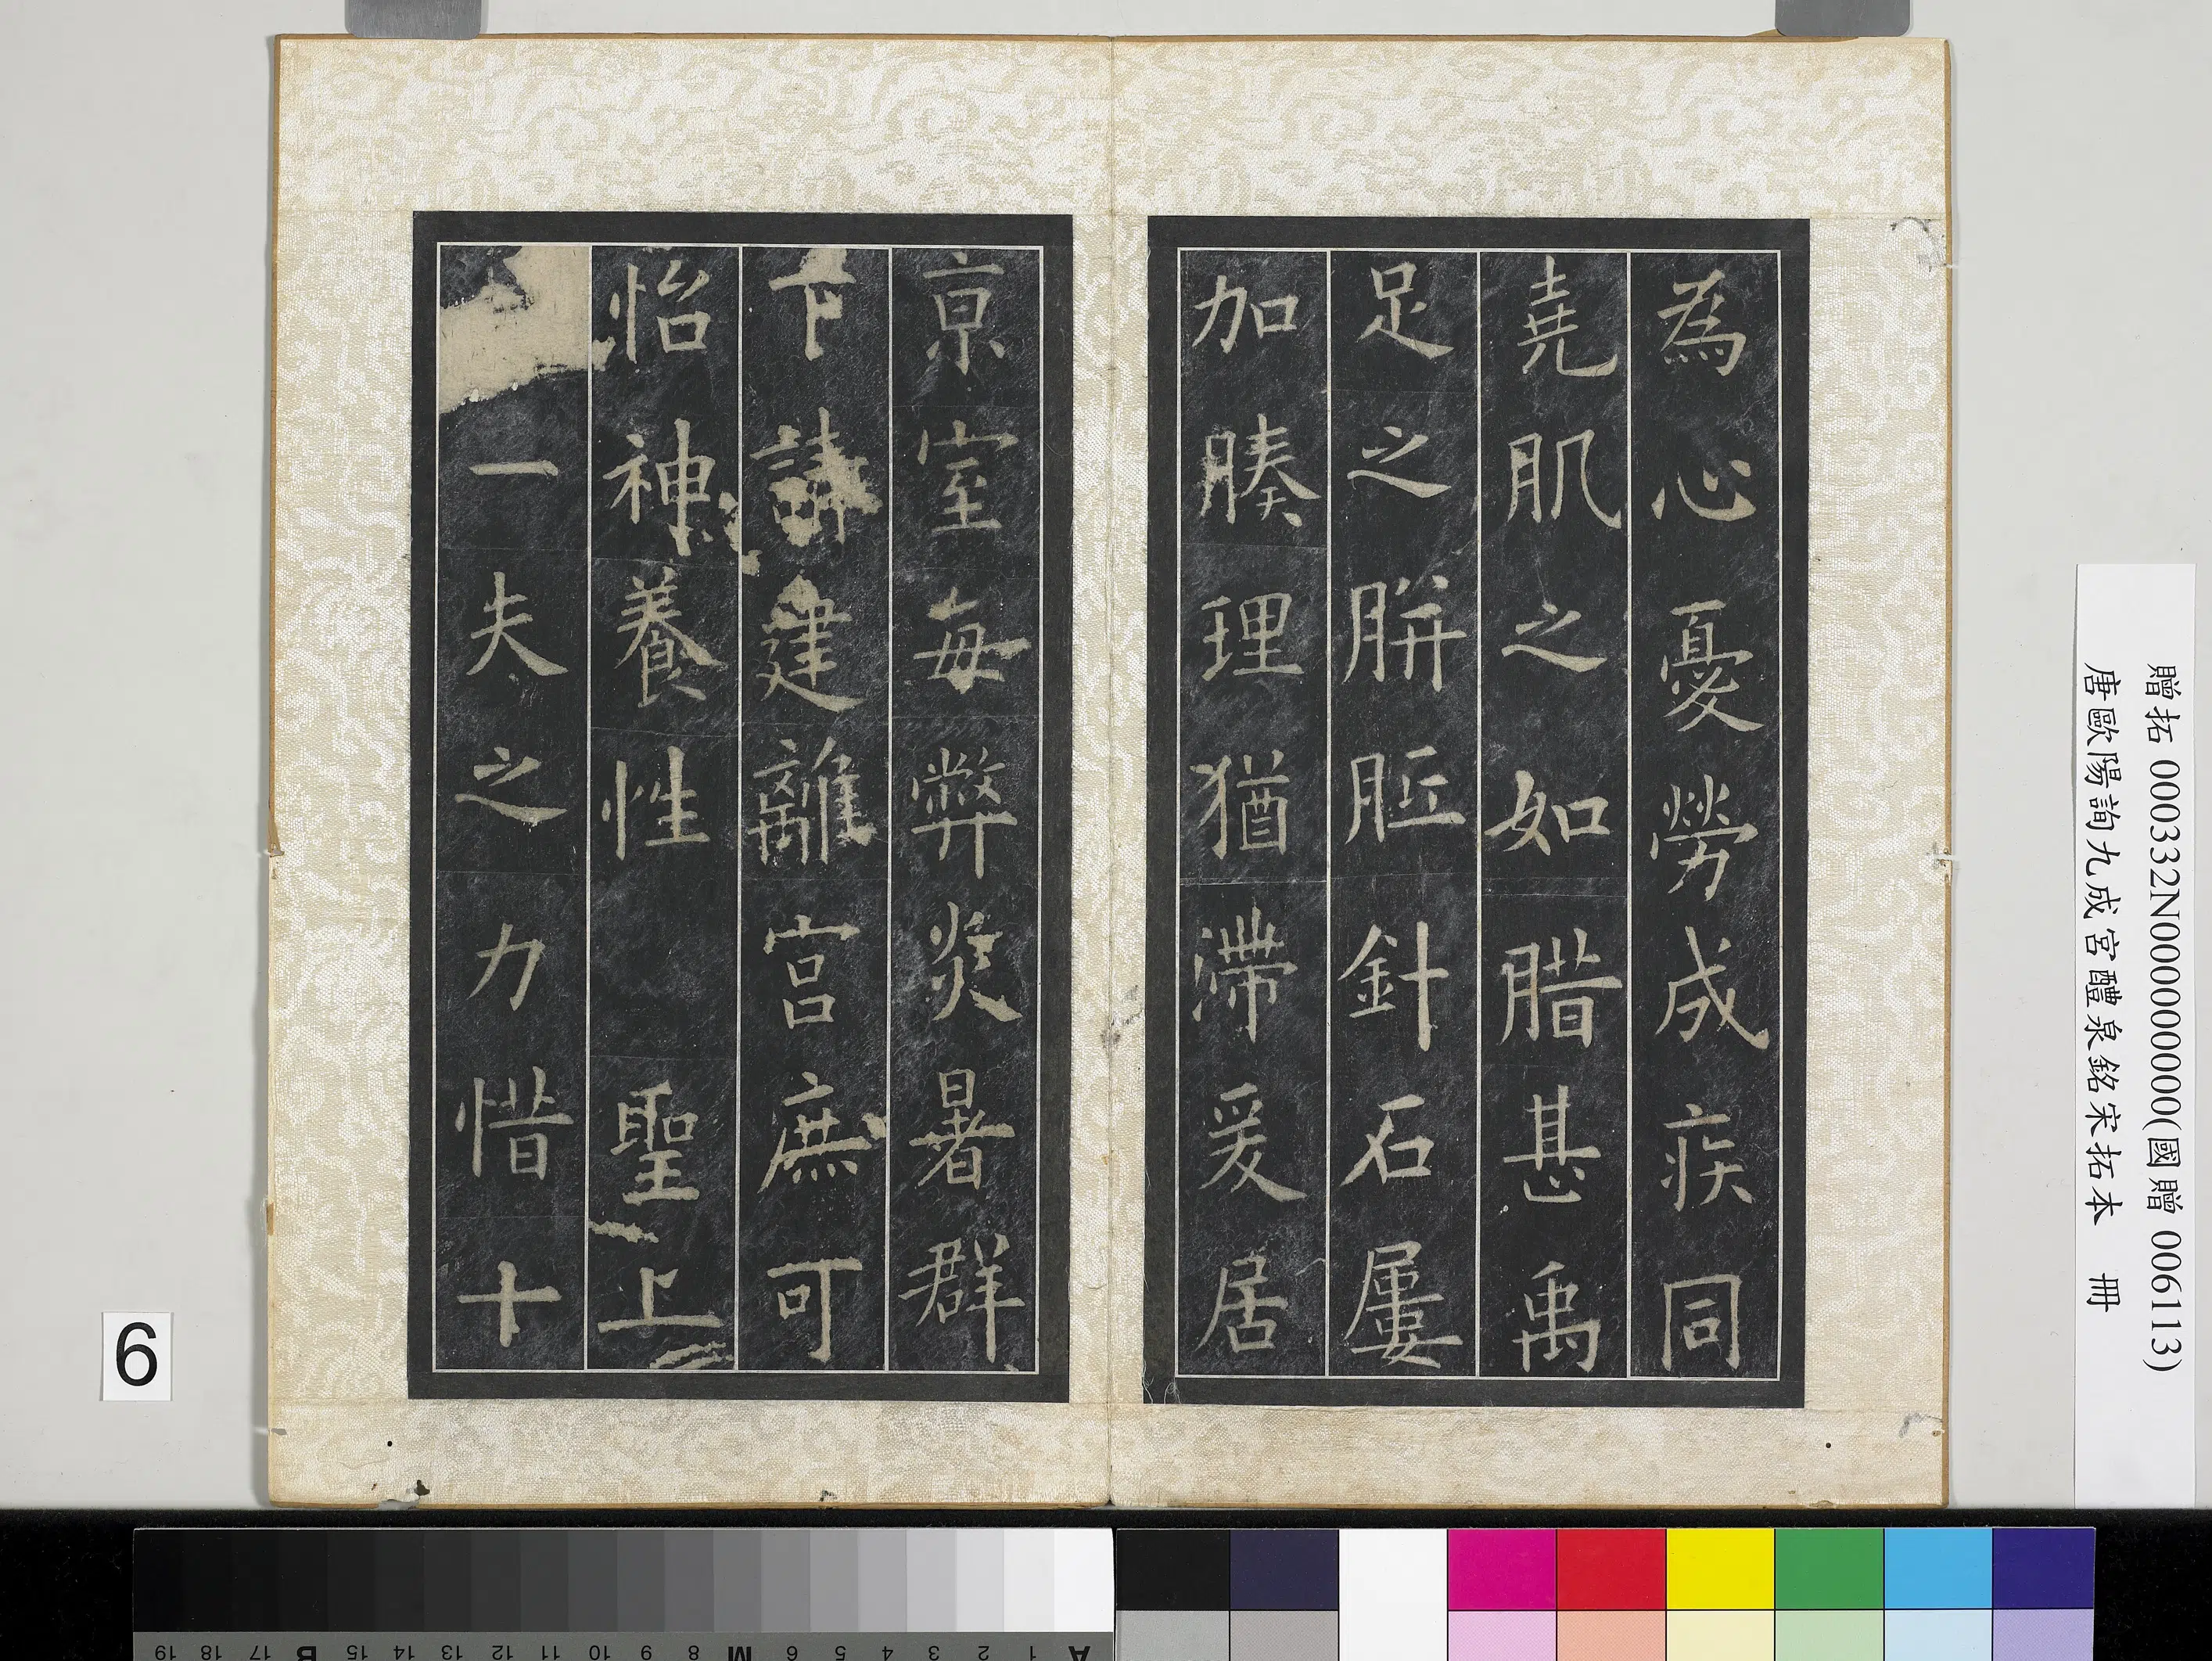 為心憂勞成疾同
堯肌之如腊甚禹
足之胼胝針石屢
加腠理猶滯爰居
京室每弊炎暑群
下請建離宮庶可
怡神養性聖上
一夫之力惜十
贈拓 000332N000000000(國贈 006113)
唐歐陽詢九成宮醴泉銘宋拓本 冊
6
19 18 17 B 15 14 13 12 11 10 9 8 M 6 5 4 3 2 1 A